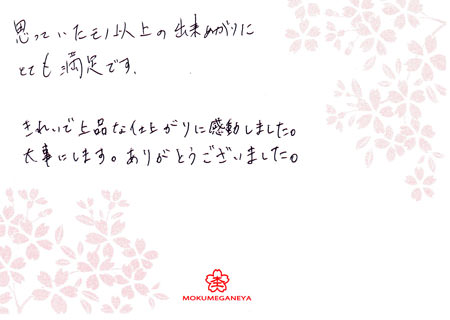 思っていたモノ以上の出来あがりに
とても満足です。
きれいで上品な仕上がりに感動しました。
大事にします。ありがとうございました。
杢
MOKUMEGANEYA